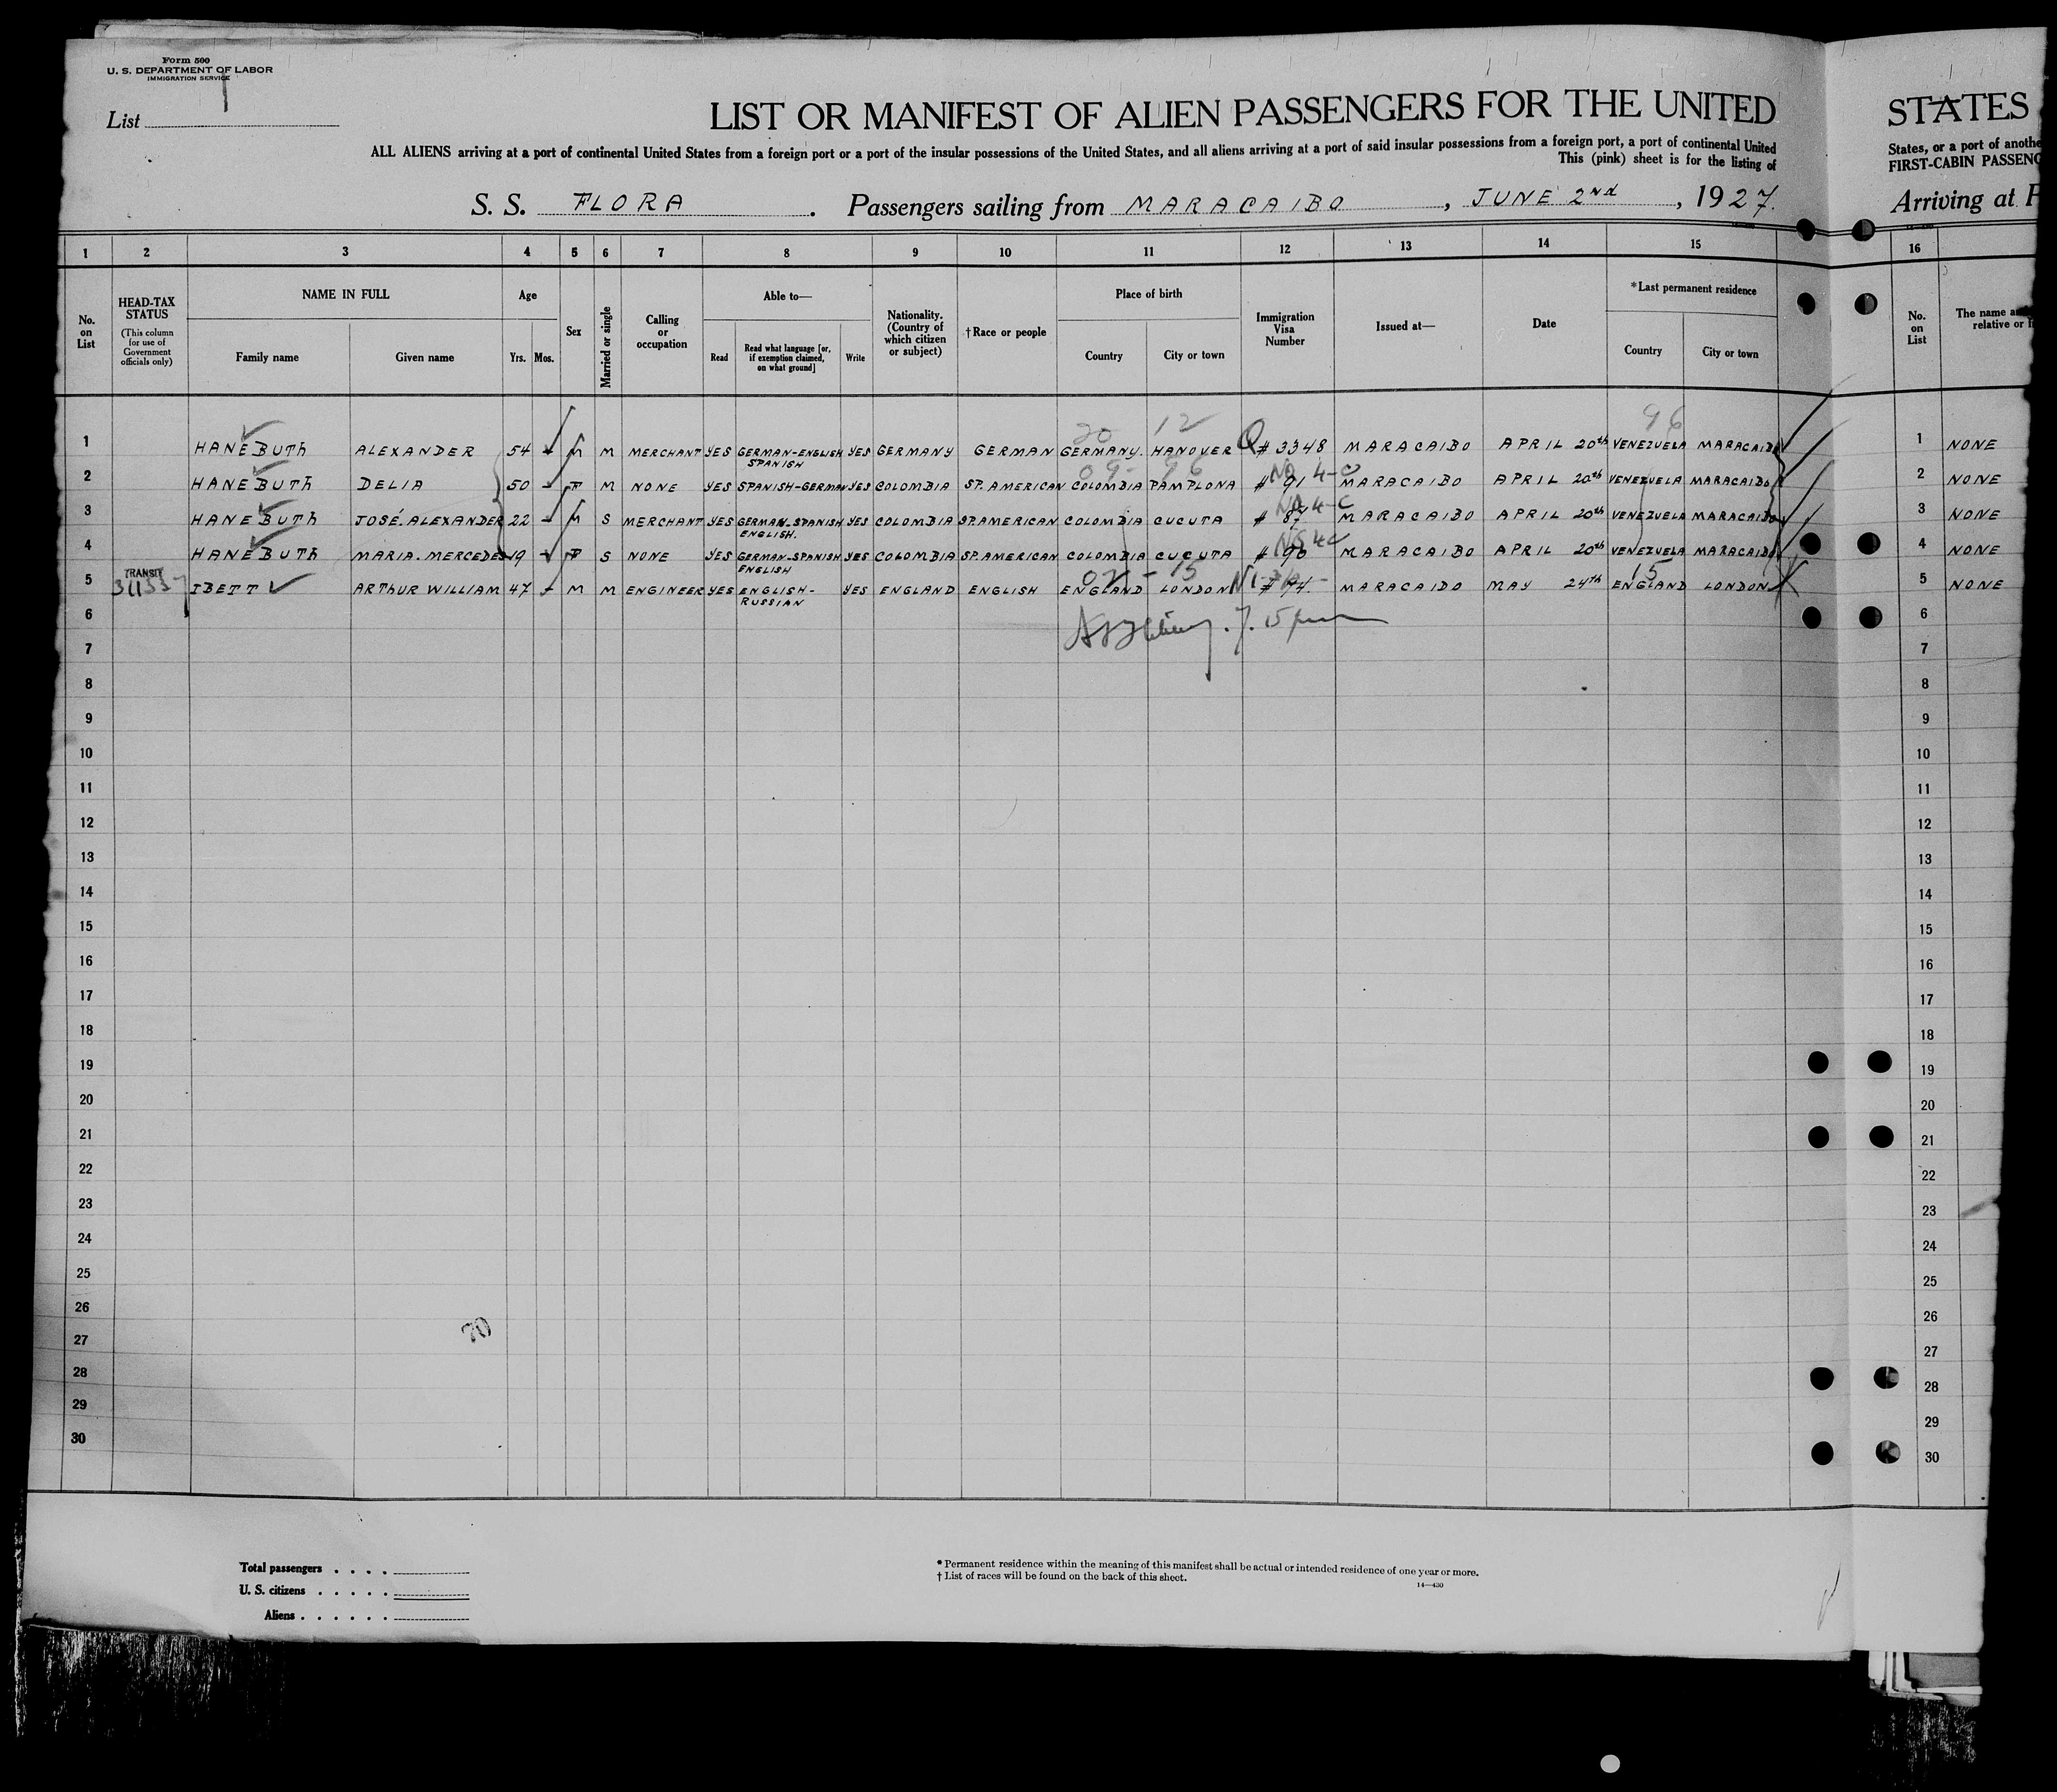 Form 500
U. S. DEPARTMENT OF LABOR
IMMIGRATION SERVICE
List 1
LIST OR MANIFEST OF ALIEN PASSENGERS FOR THE UNITED
ALL ALIENS arriving at a port of continental United States from a foreign port or a port of the insular possessions of the United States, and all aliens arriving at a port of said insular possessions from a foreign port, a port of continental United
This (pink) sheet is for the listing of
S. S. FLORA. Passengers sailing from MARACAIBO, JUNE 2nd, 1927.
STATES
States, or a port of anothe
FIRST-CABIN PASSENG
Arriving at
1 2 3 4 5 6 7 8 9 10 11 12 13 14 15 16
No. on List
HEAD-TAX STATUS
(This column for use of Government officials only)
NAME IN FULL
Family name
Given name
Age
Yrs.
Mos.
Sex
Married or single
Calling or occupation
Able to—
Read
Read what language [or, if exemption claimed, on what ground]
Write
Nationality. (Country of which citizen or subject)
†Race or people
Place of birth
Country
City or town
Immigration Visa Number
Issued at—
Date
*Last permanent residence
Country
City or town
No. on List
The name a
relative or
20 12 96
1 HANEBUTH ALEXANDER 54 - M M MERCHANT YES GERMAN-ENGLISH SPANISH YES GERMANY GERMAN GERMANY. HANOVER Q # 3348 MARACAIBO APRIL 20th VENEZUELA MARACAIBO 1 NONE
2 HANEBUTH DELIA 50 - F M NONE YES SPANISH-GERMAN YES COLOMBIA SP. AMERICAN COLOMBIA PAMPLONA # 91 MARACAIBO APRIL 20th VENEZUELA MARACAIBO 2 NONE
3 HANEBUTH JOSÉ. ALEXANDER 22 - M S MERCHANT YES GERMAN-SPANISH ENGLISH. YES COLOMBIA SP. AMERICAN COLOMBIA CUCUTA # 87 MARACAIBO APRIL 20th VENEZUELA MARACAIBO 3 NONE
4 HANEBUTH MARIA. MERCEDES 19 - F S NONE YES GERMAN-SPANISH ENGLISH YES COLOMBIA SP. AMERICAN COLOMBIA CUCUTA # 90 MARACAIBO APRIL 20th VENEZUELA MARACAIBO 4 NONE
5 TRANSIT IBETT ARTHUR WILLIAM 47 - M M ENGINEER YES ENGLISH-RUSSIAN YES ENGLAND ENGLISH ENGLAND LONDON MARACAIBO MAY 24th ENGLAND LONDON 5 NONE
6 6
7 7
8 8
9 9
10 10
11 11
12 12
13 13
14 14
15 15
16 16
17 17
18 18
19 19
20 20
21 21
22 22
23 23
24 24
25 25
26 26
27 27
28 28
29 29
30 30
70
Total passengers . . . .
U. S. citizens . . . . .
Aliens . . . . . .
* Permanent residence within the meaning of this manifest shall be actual or intended residence of one year or more.
† List of races will be found on the back of this sheet.
14—430